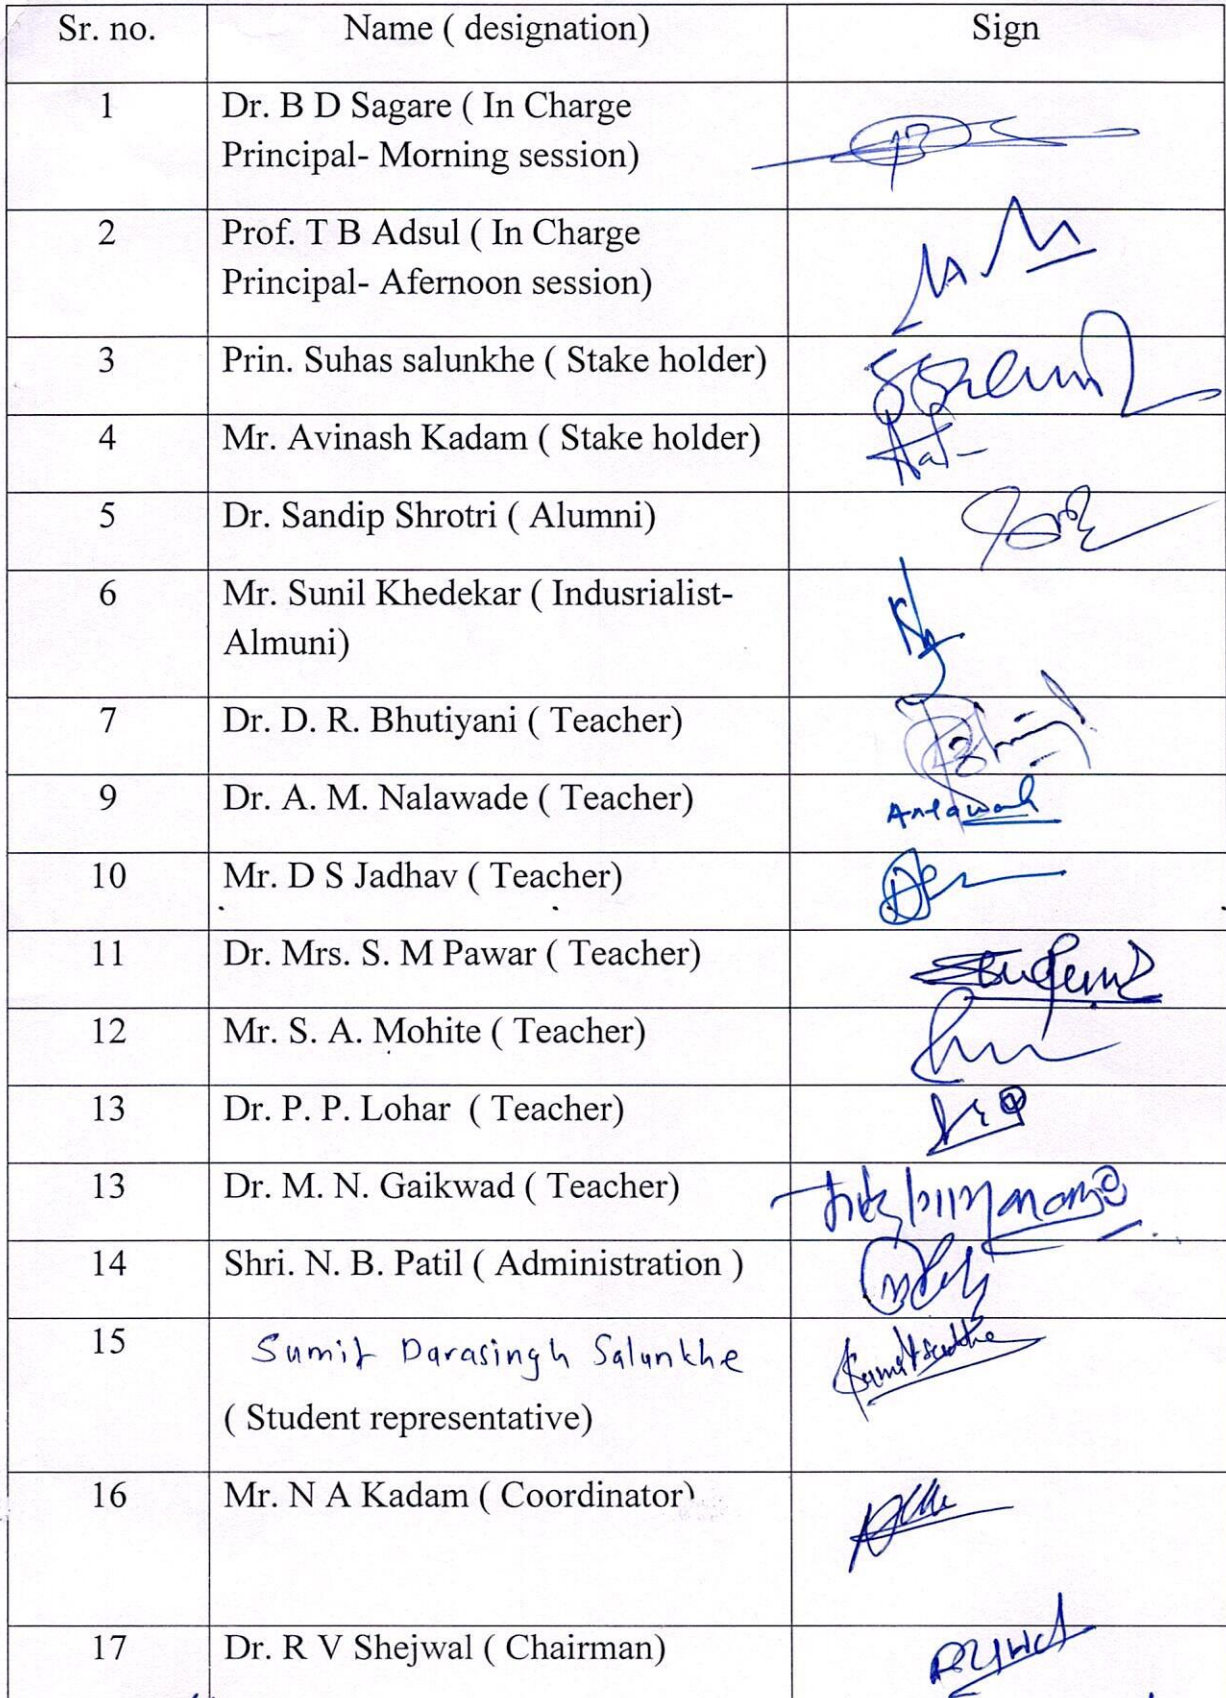 Sr. no. Name ( designation) Sign
1 Dr. B D Sagare ( In Charge
Principal- Morning session)
2 Prof. T B Adsul ( In Charge
Principal- Afernoon session)
3 Prin. Suhas salunkhe ( Stake holder)
4 Mr. Avinash Kadam ( Stake holder)
5 Dr. Sandip Shrotri ( Alumni)
6 Mr. Sunil Khedekar ( Indusrialist-
Almuni)
7 Dr. D. R. Bhutiyani ( Teacher)
9 Dr. A. M. Nalawade ( Teacher)
10 Mr. D S Jadhav ( Teacher)
11 Dr. Mrs. S. M Pawar ( Teacher)
12 Mr. S. A. Mohite ( Teacher)
13 Dr. P. P. Lohar ( Teacher)
13 Dr. M. N. Gaikwad ( Teacher)
14 Shri. N. B. Patil ( Administration )
15 Sumit Darasingh Salunkhe
( Student representative)
16 Mr. N A Kadam ( Coordinator)
17 Dr. R V Shejwal ( Chairman)